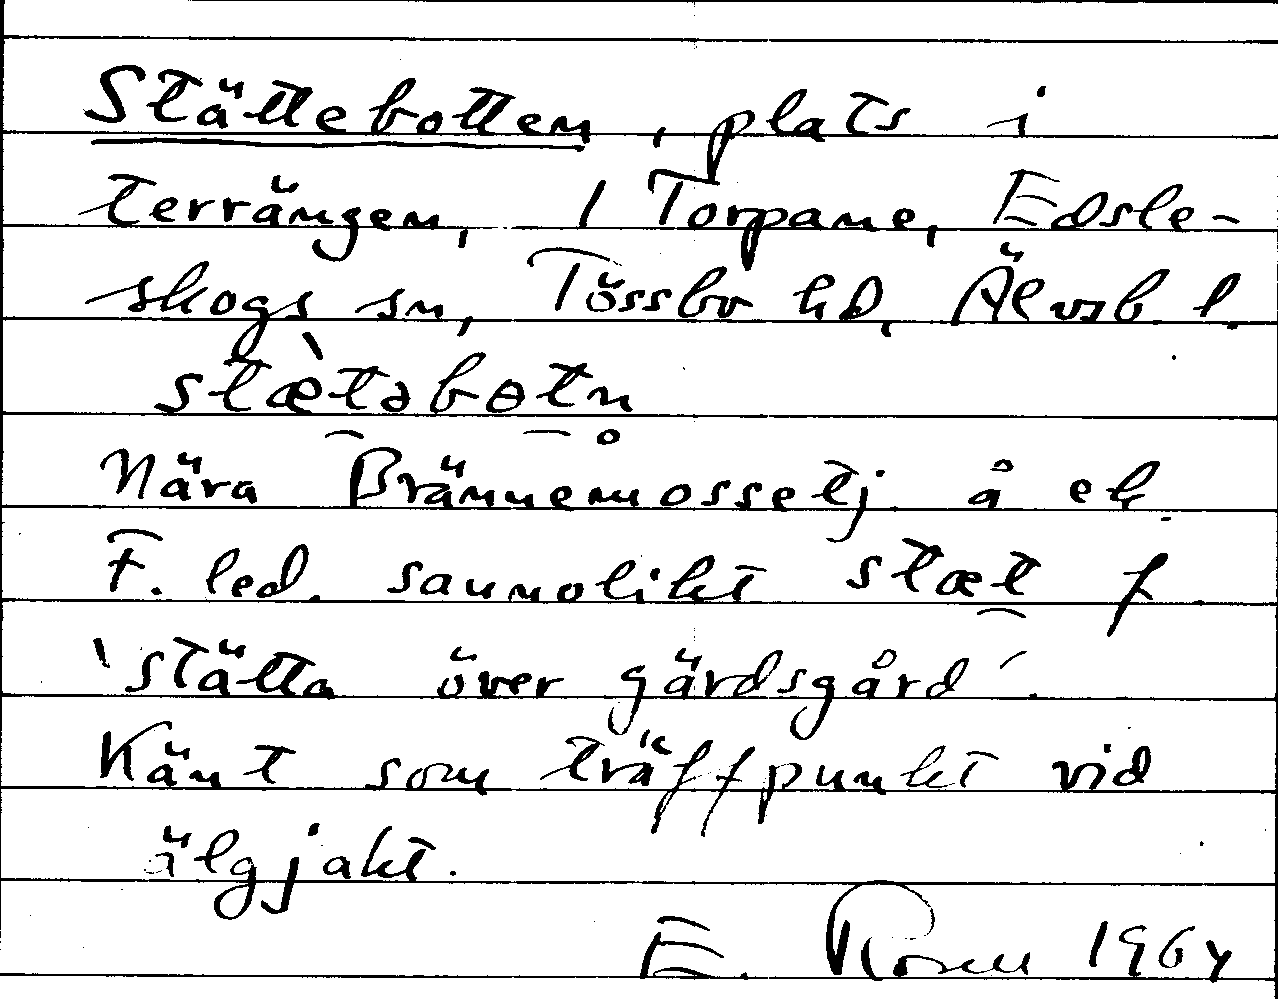 Stättebotten, plats i
terrängen, 1 Torpane, Edsle-
skogs sn, Tössbo hd, Älvsb l.
stæ̀təbɵtn̥
Nära Brännemossetj. å ek.
F. led. sannolikt stæt f
'stätta över gärdsgård'.
Känt som träffpunkt vid
älgjakt.
E. Rosen 1964